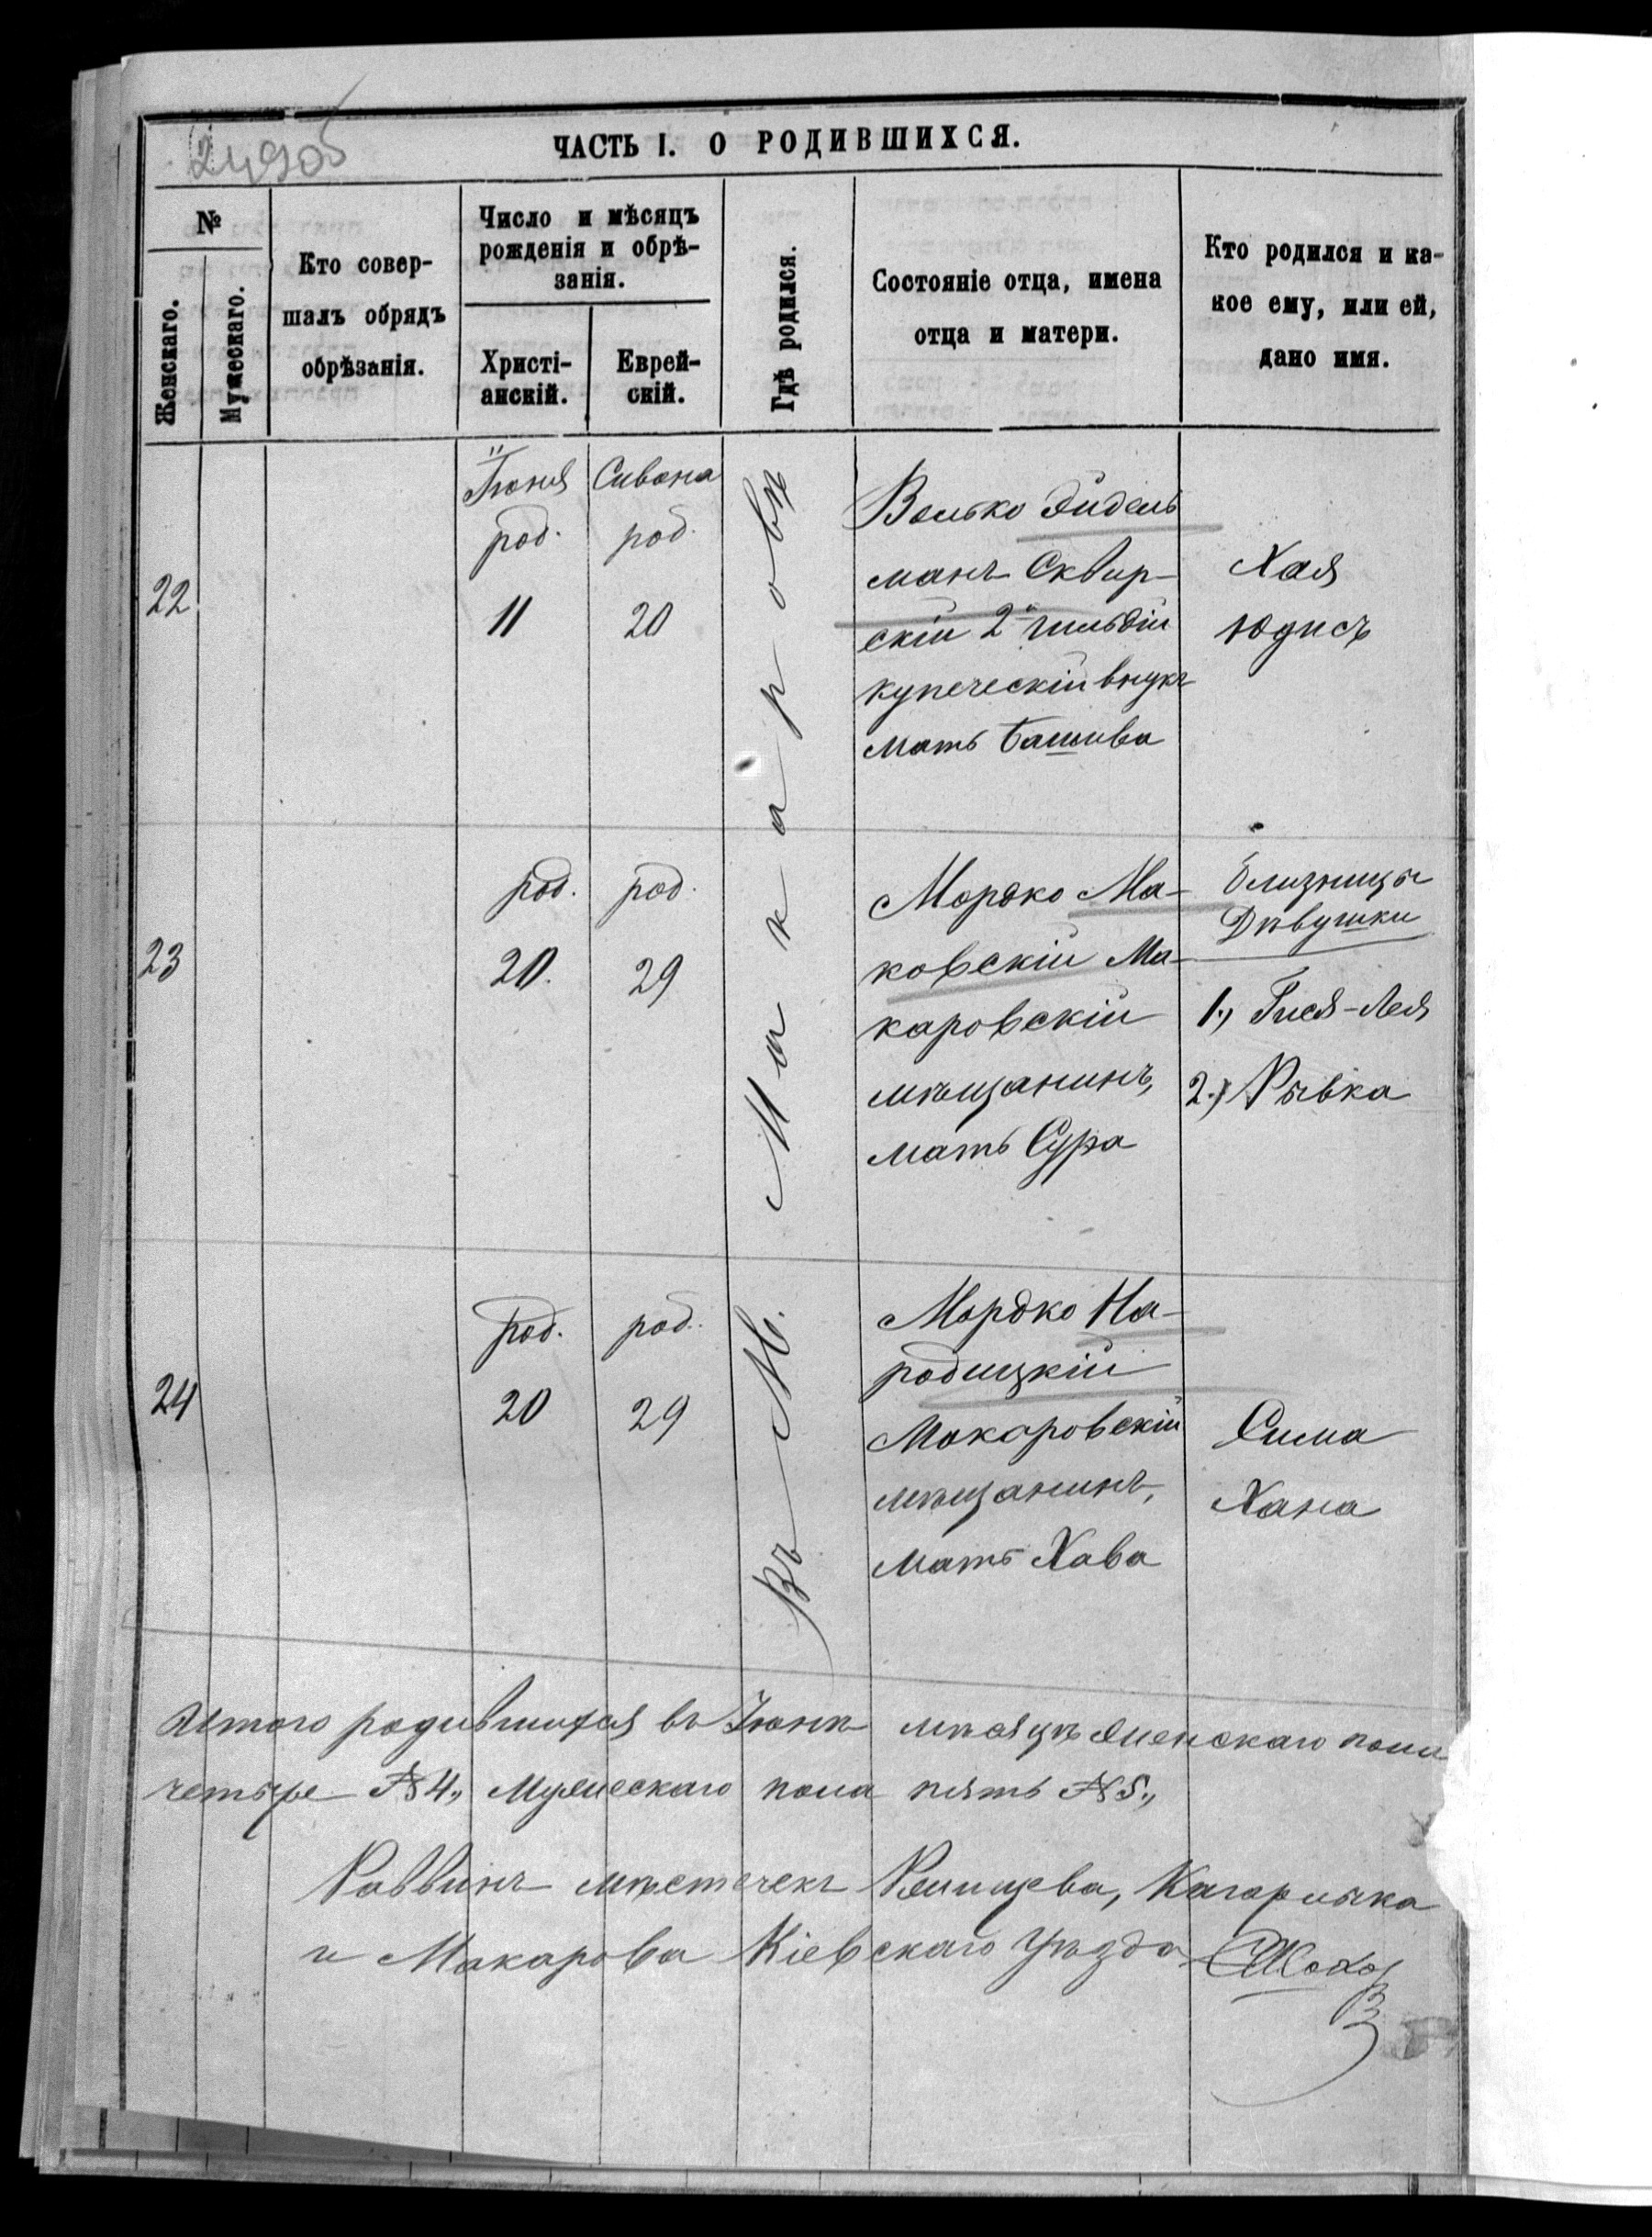 249об
ЧАСТЬ I. О РОДИВШИХСЯ.
№
Женскаго.
Мужескаго.
Кто совер-
шалъ обрядъ
обрѣзанія.
Число и мѣсяцъ
рожденія и обрѣ-
занія.
Христі-
анскій.
Еврей-
скій.
Гдѣ родился.
Состояніе отца, имена
отца и матери.
Кто родился и ка-
кое ему, или ей,
дано имя.
Іюня
Сивана
род.
род.
22
11
20
Въ М. Макаровѣ
Волько Эйдель
манъ Сквир-
скій 2й гильдіи
купеческій внукъ
мать Башива
Хая
Юдисъ
род.
род.
23
20.
29
Мордко Ма-
ковскій Ма-
каровскій
мѣщанинъ,
мать Сура
близницы
Дѣвушки
1., Гися-Лея
2.) Рывка
род.
род.
24
20
29
Мордко На-
родицкій
Макаровскій
мѣщанинъ,
мать Хава
Сима
Хана
Итого родившихся въ Іюнѣ мѣсяцѣ женскаго пола
четыре № 4., Мужескаго пола пять № 5.,
Раввинъ мѣстечекъ Ржищева, Кагарлыка
и Макарова Кіевскаго Уѣзда